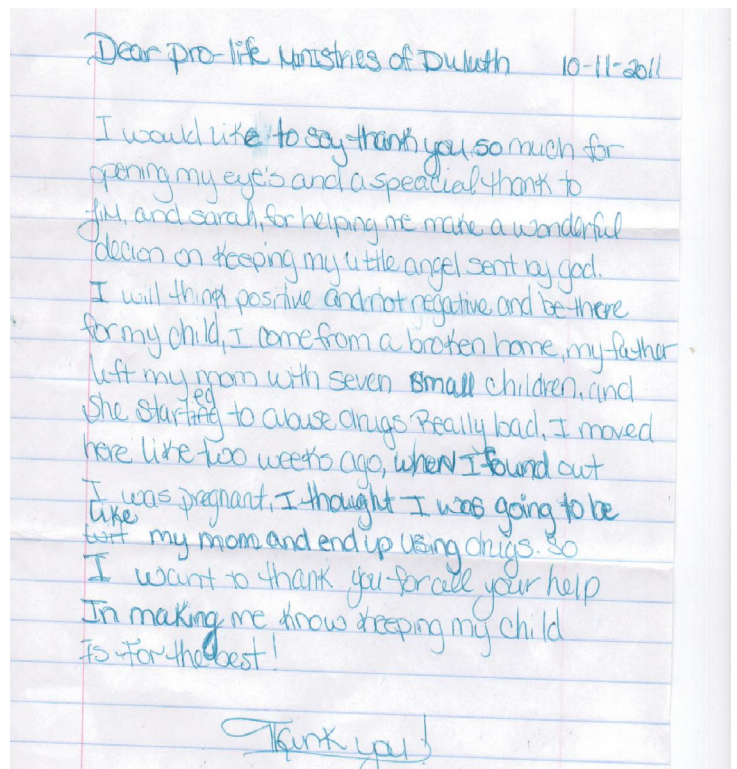 Dear pro-life Ministries of Duluth 10-11-2011
I would like to say thank you, so much for
opening my eye's and a speacial thank to
Jim. and sarah, for helping me make a wonderful
decion on keeping my little angel sent by god.
I will thing positive and not negative and be there
for my child, I come from a broken home, my father
left my mom with seven small children, and
she started to abuse drugs Really bad, I moved
here like two weeks ago, when I found out
I was pregnant, I thought I was going to be
like my mom and end up using drugs. So
I want to thank you for all your help
In making me know keeping my child
Is for the best!
Thank you!